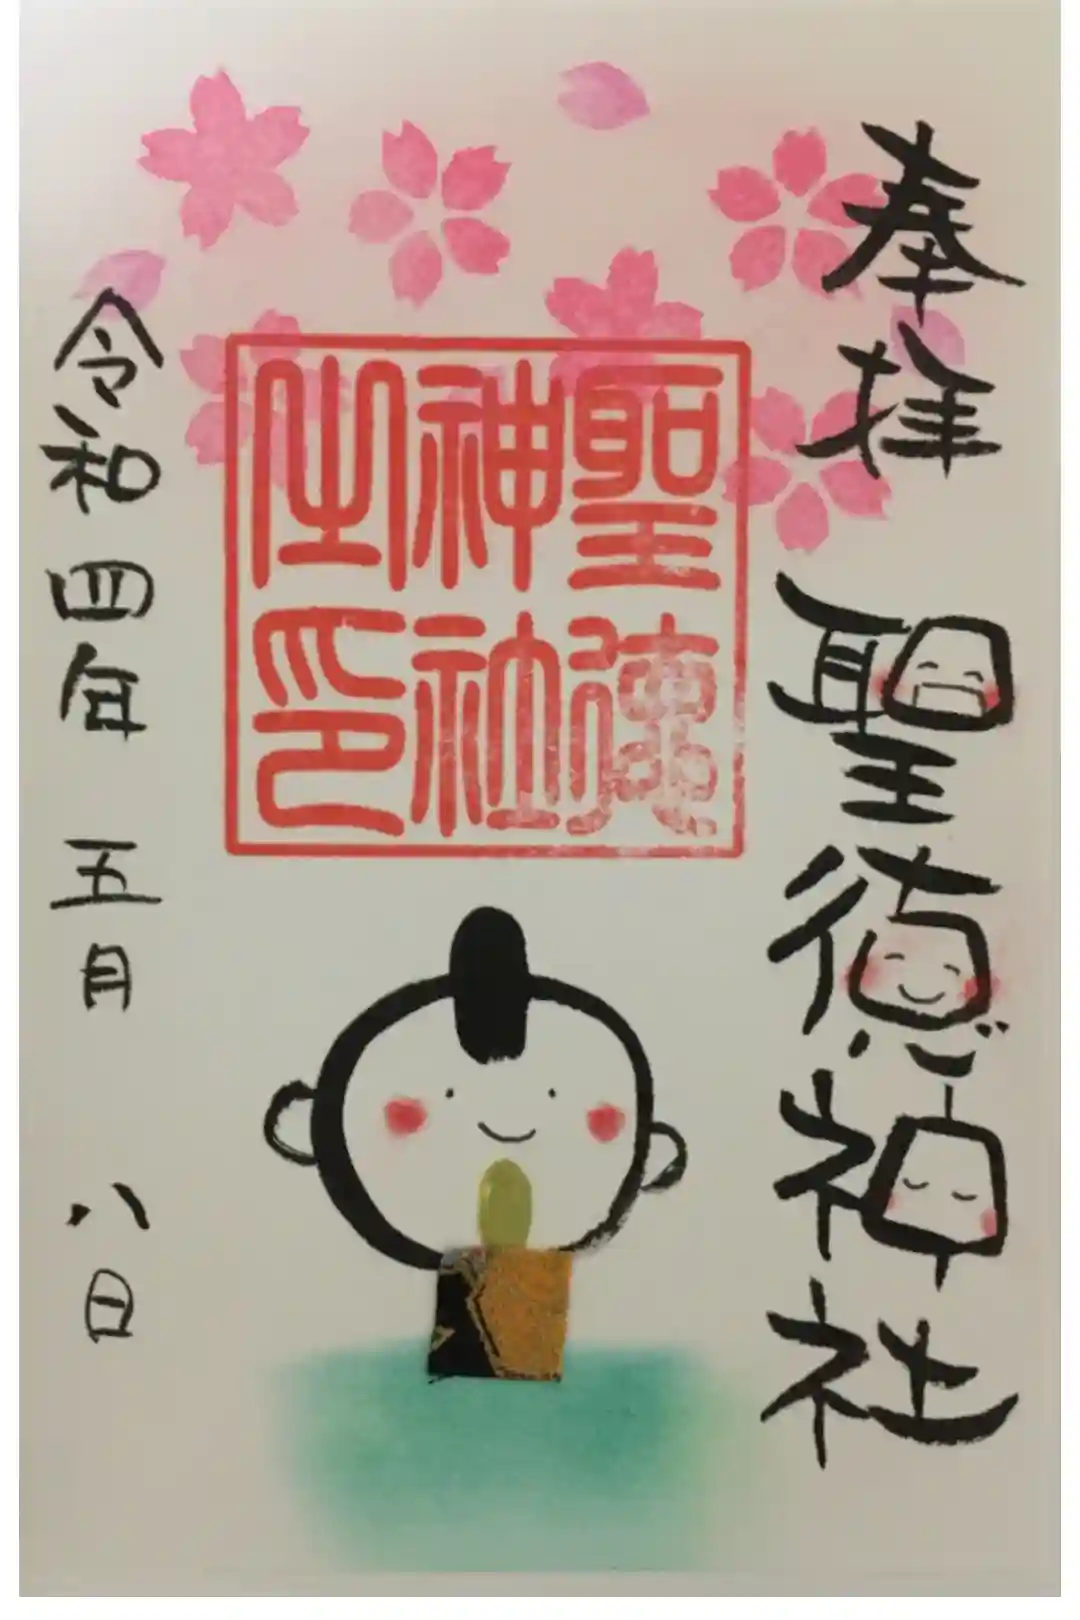 奉拝
聖徳神社
聖徳
神社
之印
令和四年 五月 八日